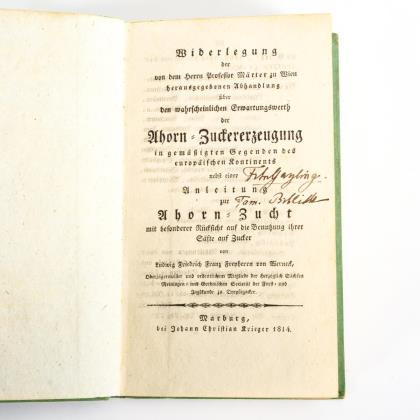 Widerlegung
der
von dem Herrn Professor Märter zu Wien
herausgegebenen Abhandlung
über
den wahrscheinlichen Erwartungswerth
der
Ahorn-Zuckererzeugung
in gemäßigten Gegenden des
europäischen Kontinents
nebst einer
Anleitung
zur
Fam. Biblioth
Ahorn-Zucht
mit besonderer Rücksicht auf die Benutzung ihrer
Säfte auf Zucker
von
Ludwig Friedrich Franz Freyherrn von Werneck,
Oberjägermeister und ordentlichem Mitgliede der Herzoglich Sachsen
Meiningen- und Gothaischen Societät der Forst- und
Jagdkunde zu Dreyßigacker.
Marburg,
bei Johann Christian Krieger 1814.